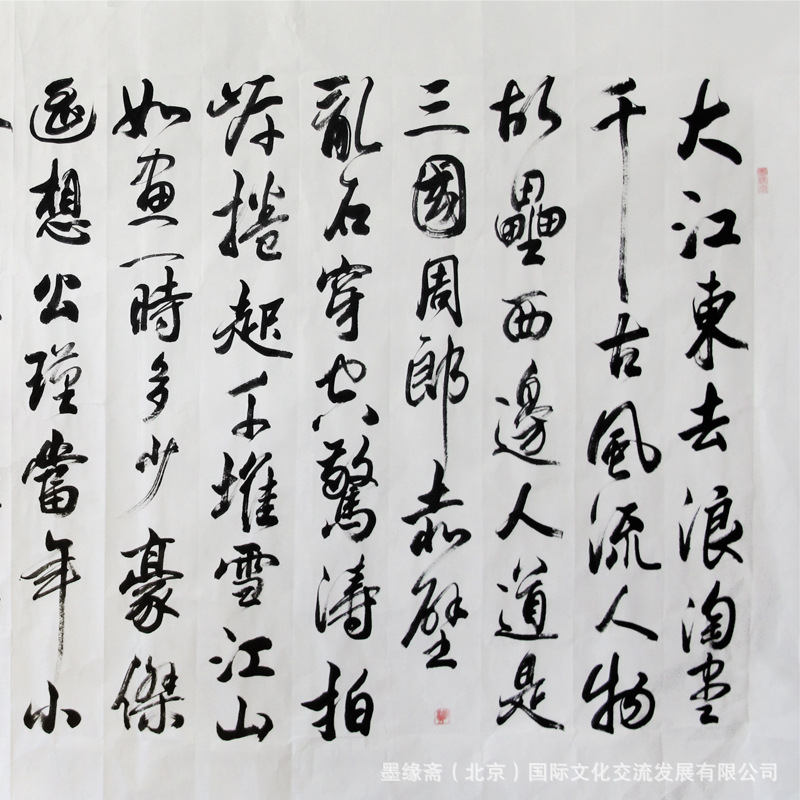 大江東去浪淘盡
千古風流人物
故壘西邊人道是
三國周郎赤壁
亂石穿空驚濤拍
岸捲起千堆雪江山
如畫一時多少豪傑
遥想公瑾當年小
墨缘斋（北京）国际文化交流发展有限公司